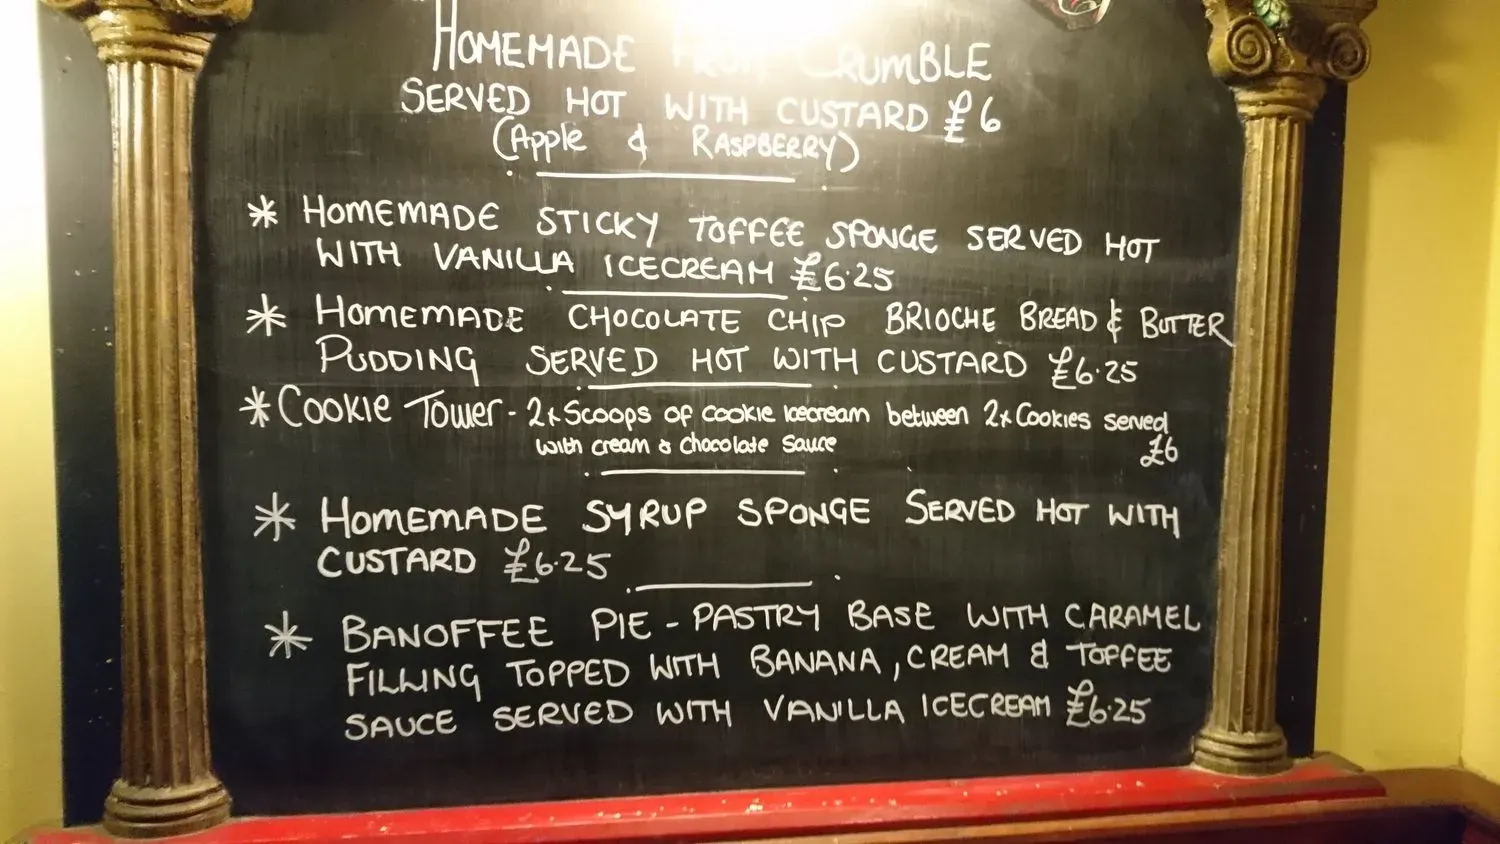 HOMEMADE FRUIT CRUMBLE
SERVED HOT WITH CUSTARD £6
(Apple & RASPBERRY)
* HOMEMADE STICKY TOFFEE SPONGE SERVED HOT
WITH VANILLA ICECREAM £6.25
* HOMEMADE CHOCOLATE CHIP BRIOCHE BREAD & BUTTER
PUDDING SERVED HOT WITH CUSTARD £6.25
* COOKIE TOWER - 2x Scoops of cookie icecream between 2x Cookies served
with cream & chocolate sauce £6
* HOMEMADE SYRUP SPONGE SERVED HOT WITH
CUSTARD £6.25
* BANOFFEE PIE - PASTRY BASE WITH CARAMEL
FILLING TOPPED WITH BANANA, CREAM & TOFFEE
SAUCE SERVED WITH VANILLA ICECREAM £6.25